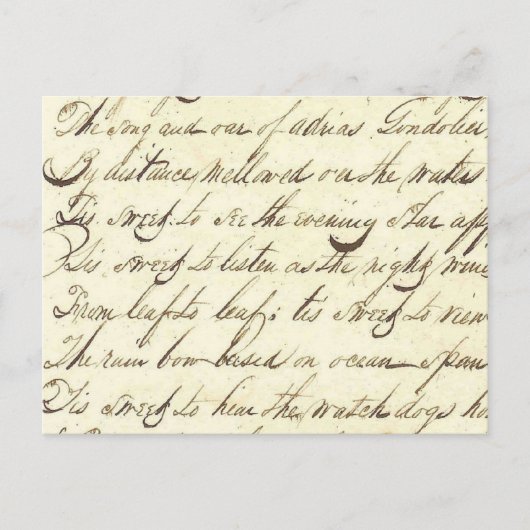 The song and oar of adrias Gondolier
By distance mellowed over the waters
Tis sweet to see the evening star app
Tis sweet to listen as the night wind
From leaf to leaf; tis sweet to view
The rain bow based on ocean span
Tis sweet to hear the watch dogs ho